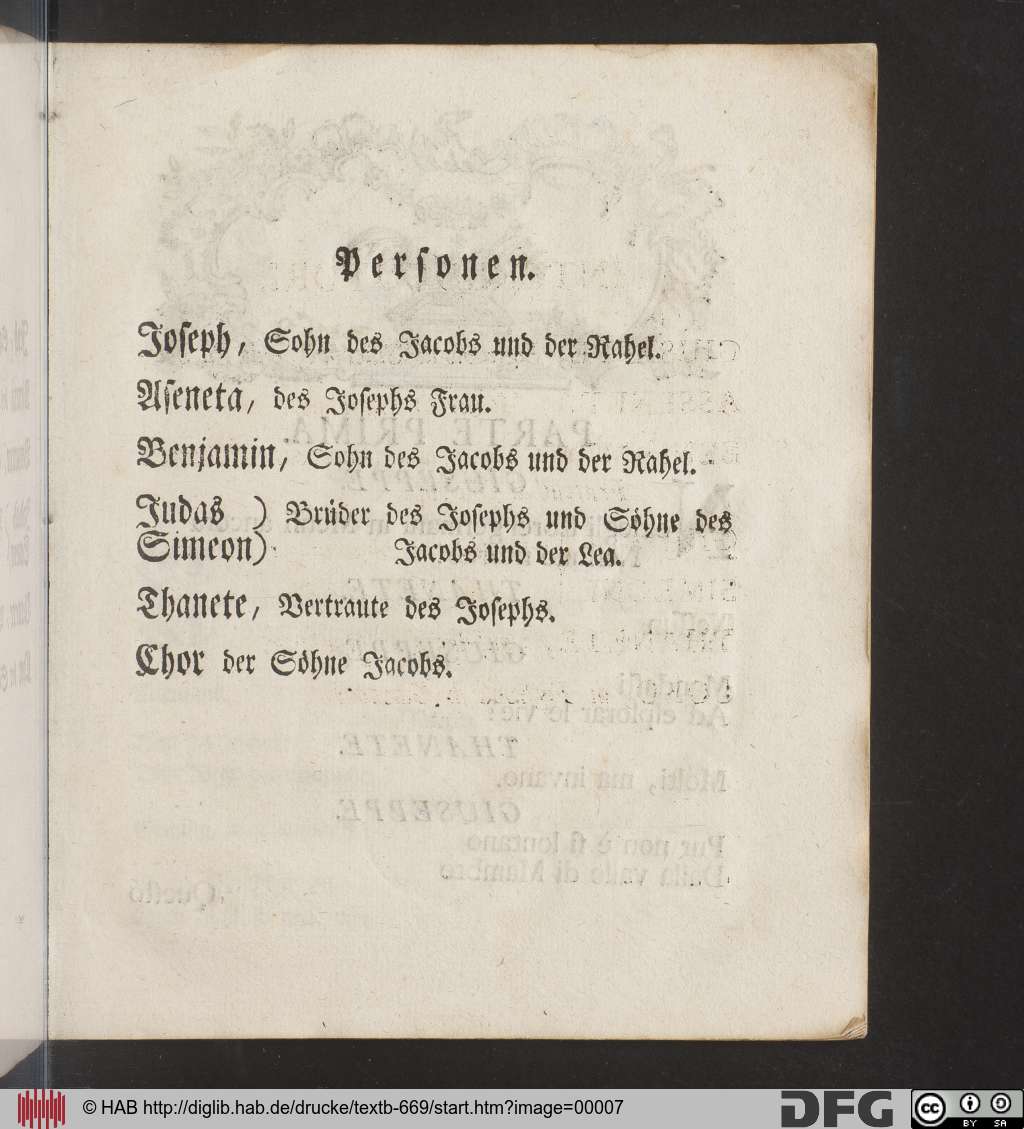 Personen.
Joseph, Sohn des Jacobs und der Rahel.
Aseneta, des Josephs Frau.
Benjamin, Sohn des Jacobs und der Rahel.
Judas ) Brüder des Josephs und Söhne des
Simeon) Jacobs und der Lea.
Thanete, Vertraute des Josephs.
Chor der Söhne Jacobs.
© HAB http://diglib.hab.de/drucke/textb-669/start.htm?image=00007
DFG
cc BY SA